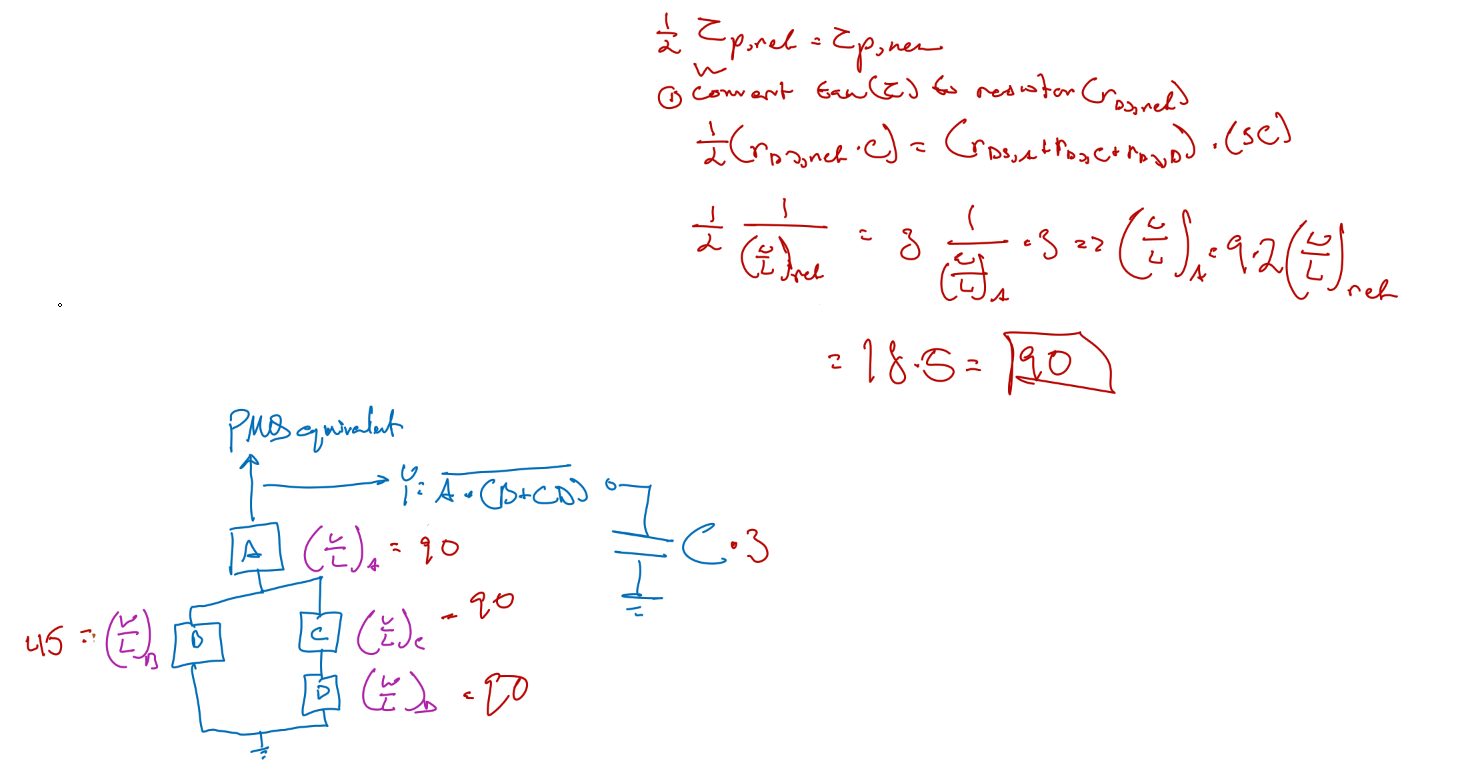 1/2 τp,ref = τp,new
① convert tau(τ) to resistor (rDS,ref)
1/2 (rDS,ref · C) = (rDS,A + rDS,C + rDS,D) · (3C)
1/2 1/(W/L)ref = 3 1/(W/L)A · 3 => (W/L)A = 9·2 (W/L)ref
= 18·5 = 90
PMOS equivalent
Y = \overline{A · (B+CD)}
A (W/L)A = 90
C · 3
45 = (W/L)B B
C (W/L)C = 90
D (W/L)D = 90